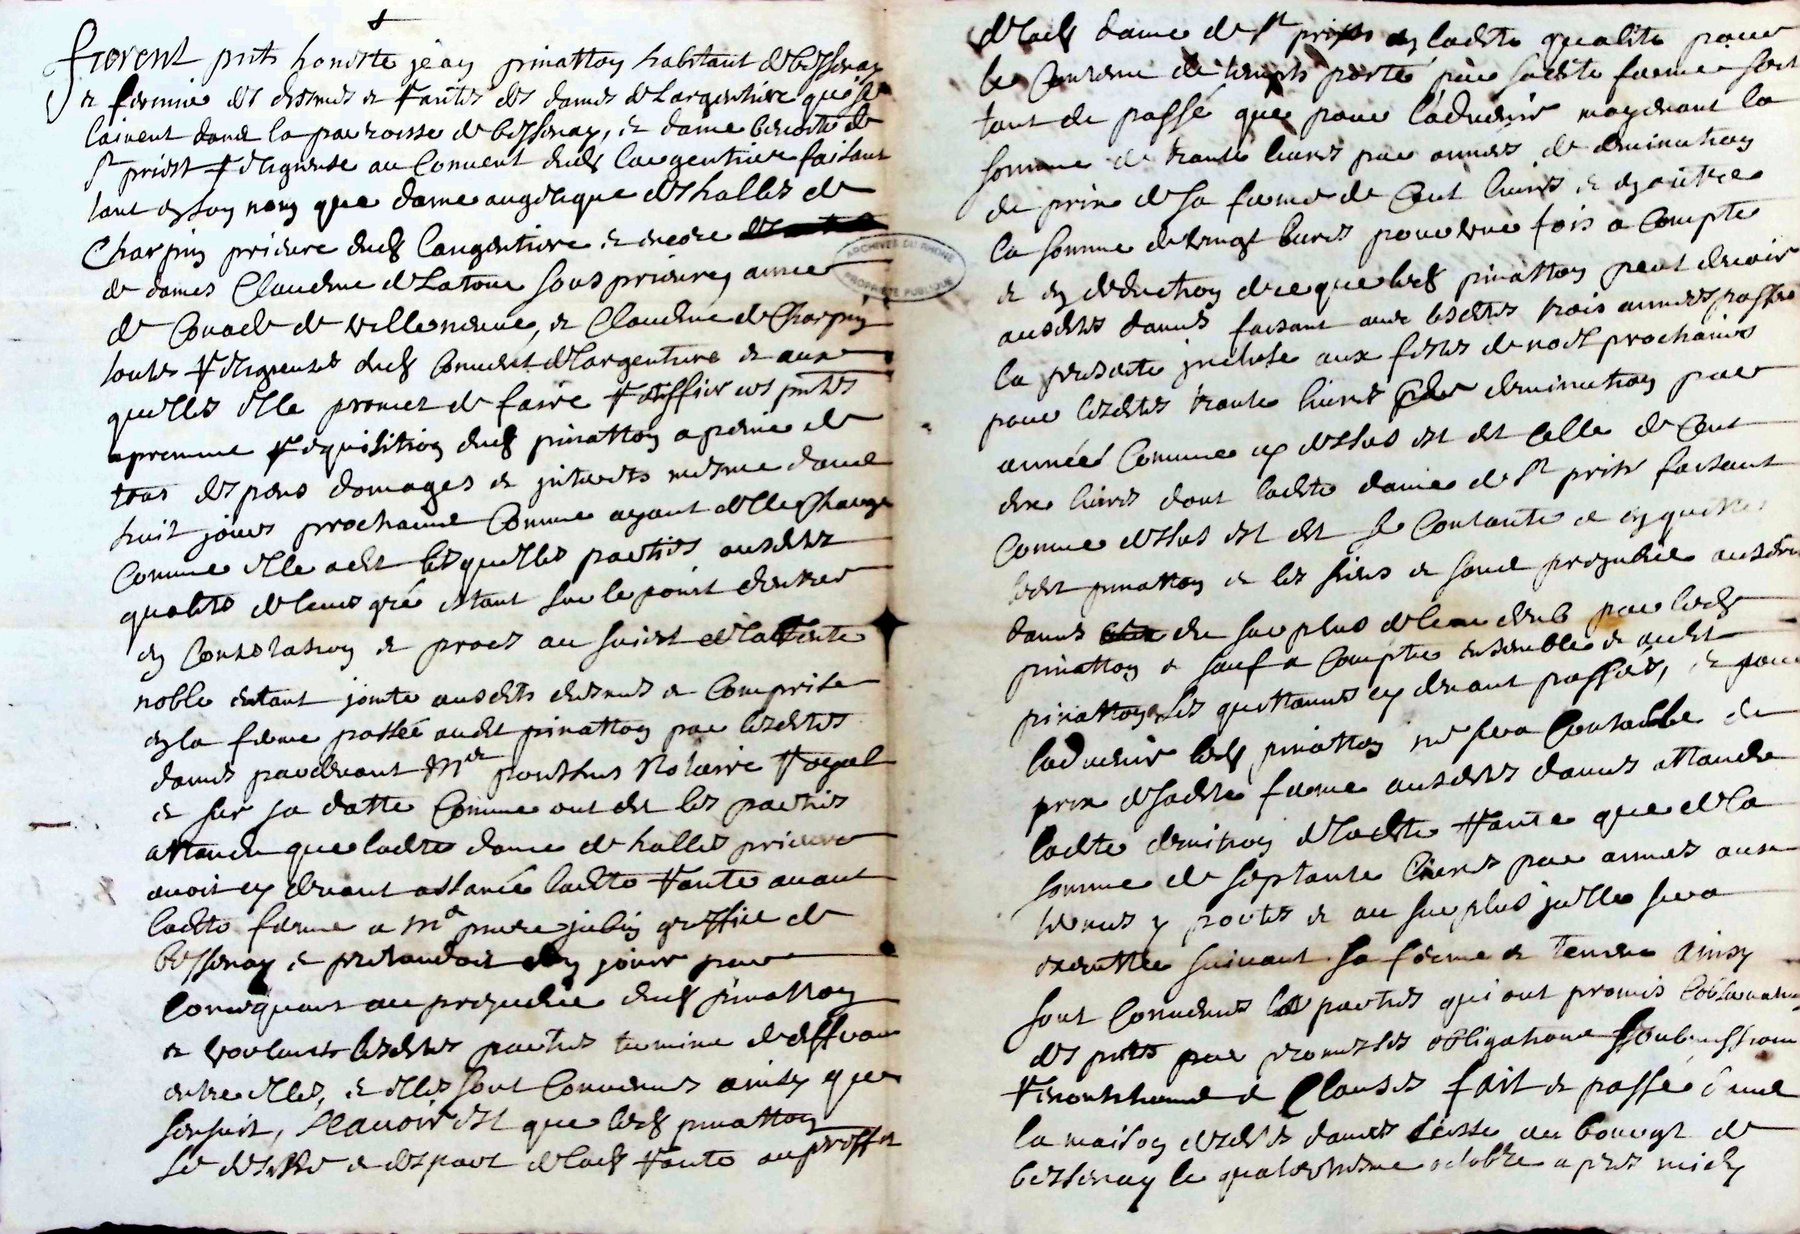 furent pnts honeste jean pinatton habitant de bessenay
et fermier des diesmes et rantes des dames de Largentiere qui se
laivent dans la parroisse de bessenay, et dame benoite de
st priest Religieuse au Convent dud Largentiere faisant
tant en son nom que dame angelique de halles de
Charpin prieure dud Largentiere et encore
de dames Claudine de Latour sous prieure, anne
de Conade de villeneuve, et Claudine de Charpin
toutes Religieuses dud Convent de Largentiere et aux
quelles elle promet de faire Ratiffier ces pntes
a premiere Requisition dud pinatton a peine de
tous despens domages et interests mesme dans
huit jours prochains Comme ayant d'elle Charge
Comme elle a dit lesquelles parties ausdites
qualites de leurs gré estant sur le point d'entrer
en Contestation et proces au suiect de la Rente
noble estant jointe ausdits diesmes et Comprise
en la ferme passée audit pinatton par lesdites
dames pardevant Me ponthus Notaire Royal
et sur sa datte Comme ont dit les parties
attandu que ladite dame de halles prieure
avoit cy devant assancé ladite Rante avant
ladite ferme a Me pierre jubin greffier de
bessenay et pretandoit en jouir par
Consequant au prejudice dud pinatton
et voulants lesdites parties terminer le differant
entre elles, et elles sont Convenues ainsy que
sensuit, Scavoir est que led pinatton
se desiste et despart de lad Rante au proffit
de lad dame de st priest en ladite qualite pour
le Contenu de temps porté par sadite ferme soit
tant de passé que pour l'advenir moyenant la
somme de trante livres par annee de diminution
du prix de sa ferme de Cent livres et en oultre
la somme de vingt livres pour une fois a Compte
et en deduction de ce que led pinatton peut devoir
ausdites dames faisant avec lesdites trois annees passées
la presante incluse aux festes de noel prochaines
pour lesdites trante livres de diminution par
année Comme cy dessus est dit celle de Cent
dix livres dont ladite dame de st priest faisant
Comme dessus est dit se Contante et en quitte
ledit pinatton et les siens et sans prejudice ausdites
dames du surplus de leur deub par led
pinatton et sauf a Compter ensemble et audit
pinatton ses quittances cy devant passées, et pour
l'advenir led pinatton ne sera Contable du
prix de sadite ferme ausdites dames attandu
ladite demission de ladite Rante que de la
somme de septante livres par annees aux
termes y portés et au surplus jcelle sera
executtée suivant sa forme et teneur ainsy
sont Convenues les parties qui ont promis l'observation
des pntes par promesses obligations soubmissions
Renontiations et Clauses fait et passé dans
la maison desdites dames sisse au bourgt de
bessenay le quatorziesme octobre apres midy
ARCHIVES DU RHÔNE
PROPRIÉTÉ PUBLIQUE